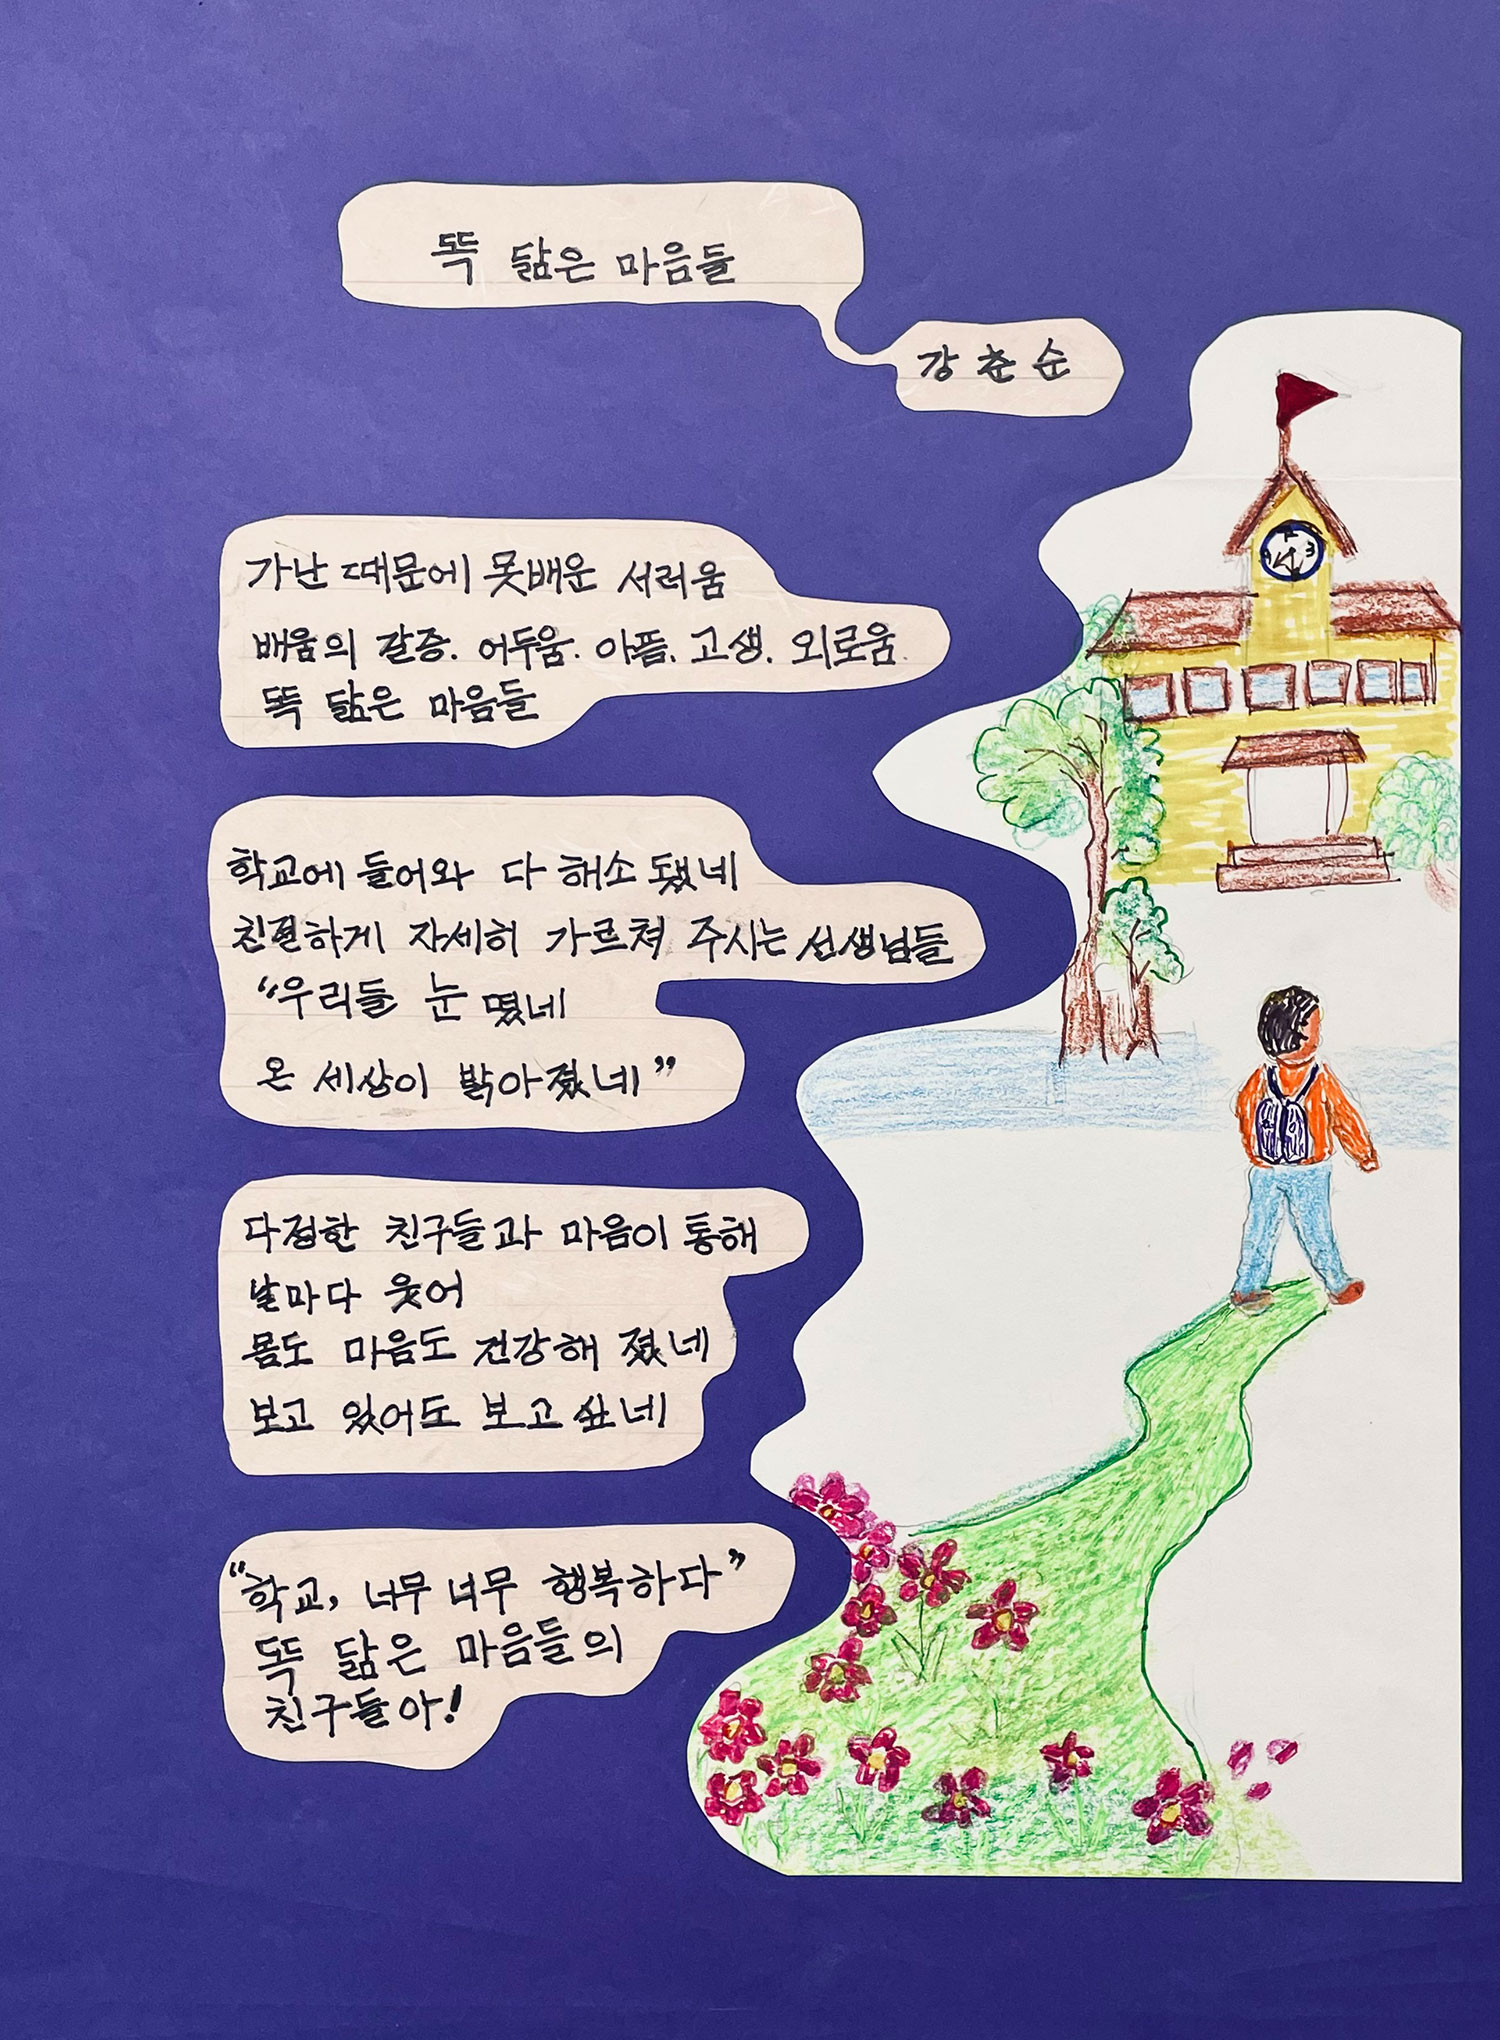 똑 닮은 마음들
강춘순
가난 때문에 못배운 서러움
배움의 갈증. 어두움. 아픔. 고생. 외로움.
똑 닮은 마음들
학교에 들어와 다 해소 됐네
친절하게 자세히 가르쳐 주시는 선생님들
“우리들 눈 떴네
온 세상이 밝아졌네”
다정한 친구들과 마음이 통해
날마다 웃어
몸도 마음도 건강해 졌네
보고 있어도 보고싶네
“학교, 너무 너무 행복하다”
똑 닮은 마음들의
친구들아!